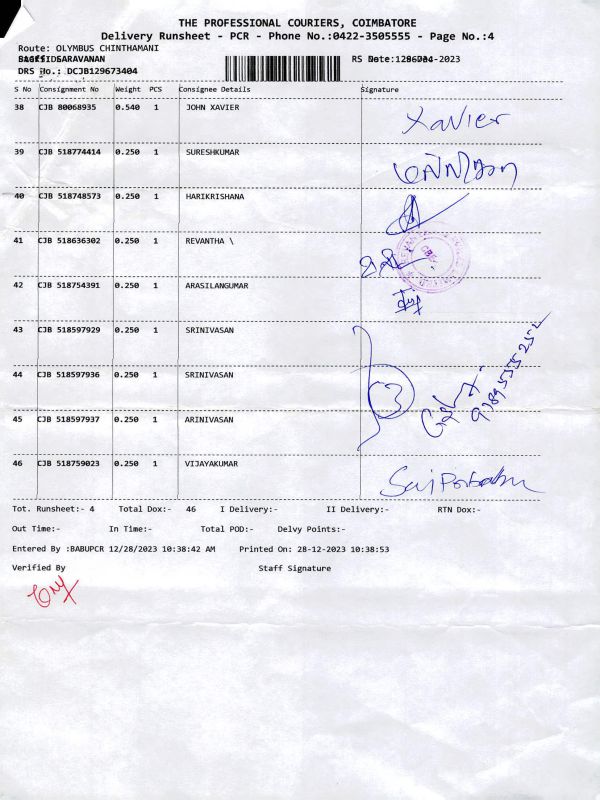 THE PROFESSIONAL COURIERS, COIMBATORE
Delivery Runsheet - PCR - Phone No.:0422-3505555 - Page No.:4
Route: OLYMBUS CHINTHAMANI
SARAVANAN RS Date: -2023
DRS No.: DCJB129673404
S No Consignment No Weight PCS Consignee Details Signature
38 CJB 80068935 0.540 1 JOHN XAVIER Xavier
39 CJB 518774414 0.250 1 SURESHKUMAR
40 CJB 518748573 0.250 1 HARIKRISHANA
41 CJB 518636302 0.250 1 REVANTHA \
42 CJB 518754391 0.250 1 ARASILANGUMAR
43 CJB 518597929 0.250 1 SRINIVASAN
44 CJB 518597936 0.250 1 SRINIVASAN 3
45 CJB 518597937 0.250 1 ARINIVASAN
46 CJB 518759023 0.250 1 VIJAYAKUMAR
Tot. Runsheet:- 4 Total Dox:- 46 I Delivery:- II Delivery:- RTN Dox:-
Out Time:- In Time:- Total POD:- Delvy Points:-
Entered By :BABUPCR 12/28/2023 10:38:42 AM Printed On: 28-12-2023 10:38:53
Verified By Staff Signature